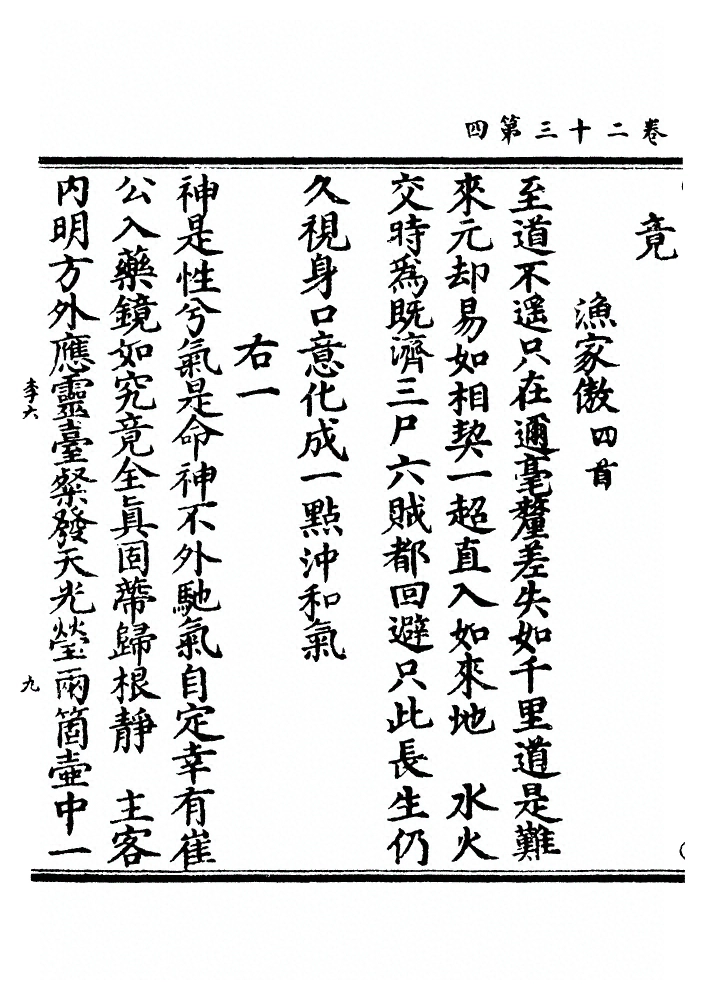 四第三十二卷
竟
漁家傲四首
至道不遥只在邇毫釐差失如千里道是難
來元却易如相契一超直入如來地　水火
交時爲既濟三尸六賊都回避只此長生仍
久視身口意化成一點沖和氣
右一
神是性兮氣是命神不外馳氣自定幸有崔
公入藥鏡如究竟全眞固蔕歸根靜　主客
内明方外應靈臺粲發天光瑩兩箇壷中一
李六
九